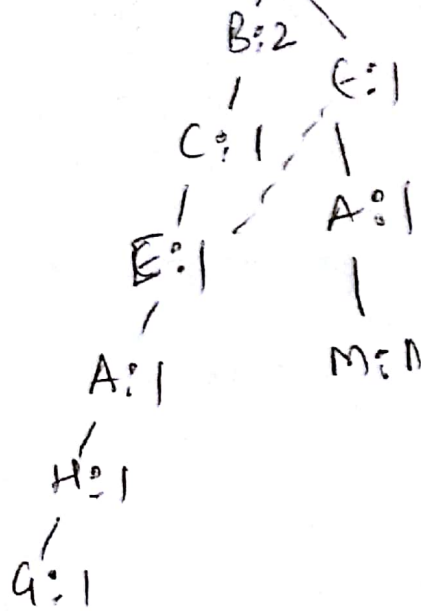 B:2
E:1
C:1
A:1
E:1
M:1
A:1
H:1
G:1